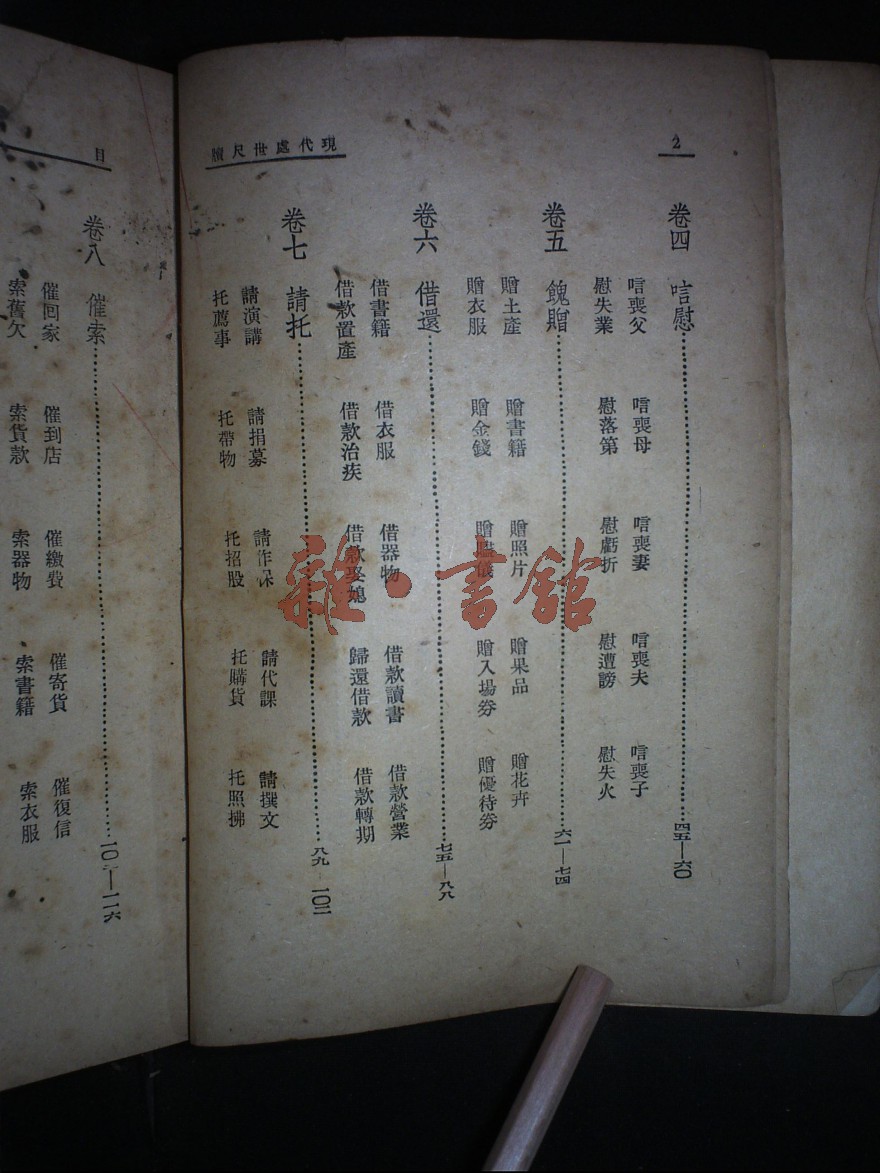 2
現代處世尺牘
卷四 唁慰……四五—六〇
唁喪父 唁喪母 唁喪妻 唁喪夫 唁喪子
慰失業 慰落第 慰虧折 慰遭謗 慰失火
卷五 餽贈……六一—七四
贈土產 贈書籍 贈照片 贈果品 贈花卉
贈衣服 贈金錢 贈贐儀 贈入場券 贈優待券
卷六 借還……七五—八八
借書籍 借衣服 借器物 借款讀書 借款營業
借款置產 借款治疾 借款娶媳 歸還借款 借款轉期
卷七 請托……八九—一〇二
請演講 請捐募 請作保 請代課 請撰文
托薦事 托帶物 托招股 托購貨 托照拂
目
卷八 催索……一〇 —一一六
催回家 催到店 催繳費 催寄貨 催復信
索舊欠 索貨款 索器物 索書籍 索衣服
雜·書館